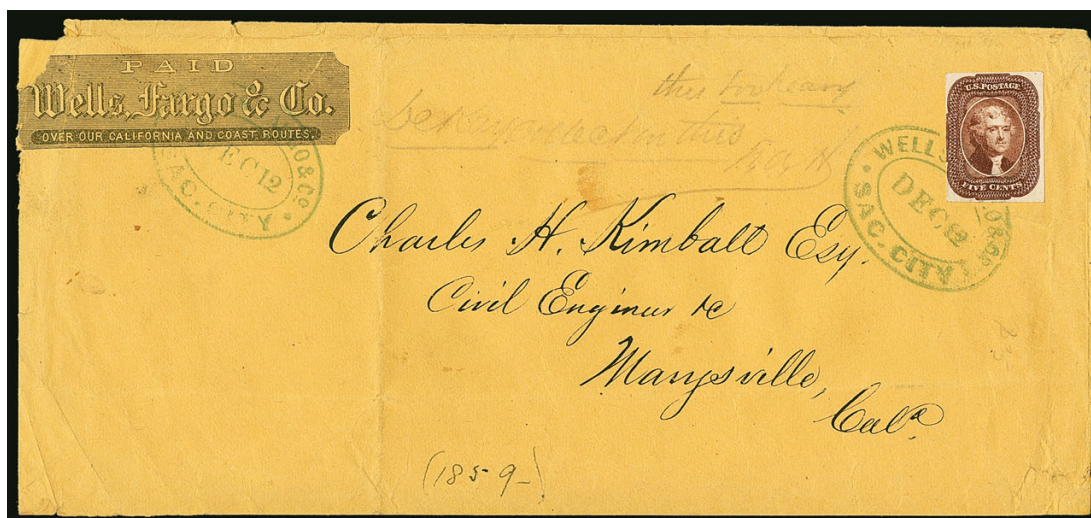 PAID
Wells, Fargo & Co.
OVER OUR CALIFORNIA AND COAST ROUTES.
GO & Co.
DEC 12
SAC. CITY
this
U.S. POSTAGE
FIVE CENTS
WELLS
DEC 12
SAC. CITY
Charles H. Kimball Esq.
Civil Engineer &c
Marysville,
Cala
(1859-)